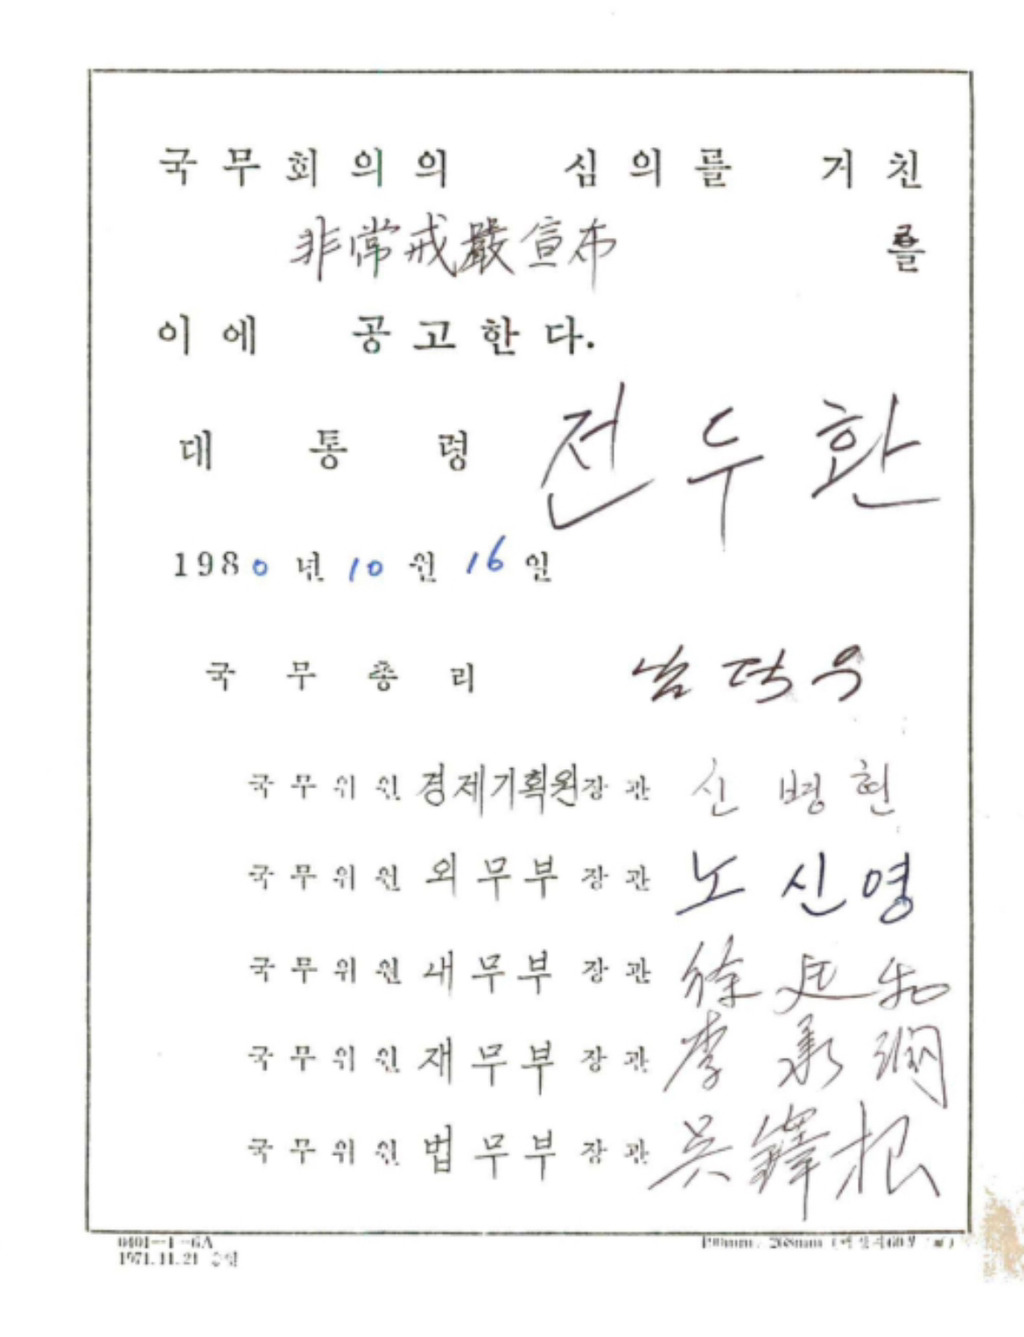 국무회의의 심의를 거친
非常戒嚴宣布 를
이에 공고한다.
대통령 전두환
1980년 10월 16일
국무총리 남덕우
국무위원 경제기획원장관 신병현
국무위원 외무부장관 노신영
국무위원 내무부장관 徐廷和
국무위원 재무부장관 李承潤
국무위원 법무부장관 吳鐸根
0401-1-6A
1971.11.21 승인
190mm 268mm